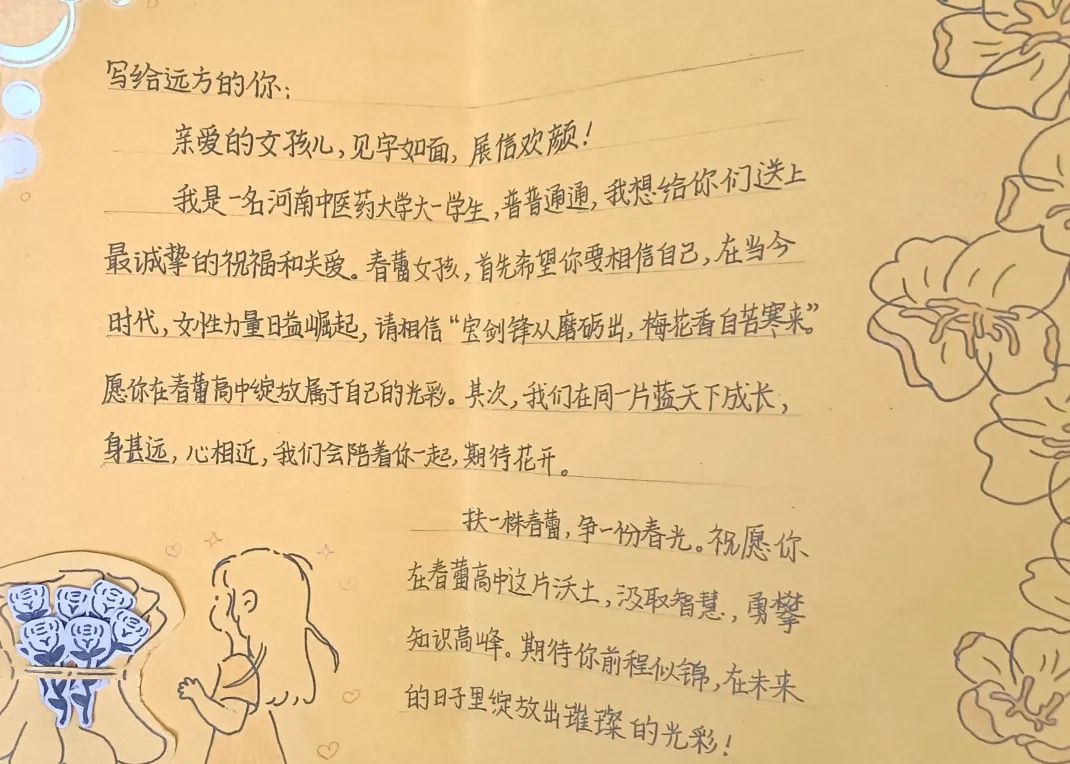 写给远方的你：
亲爱的女孩儿，见字如面，展信欢颜！
我是一名河南中医药大学大一学生，普普通通，我想给你们送上
最诚挚的祝福和关爱。春蕾女孩，首先希望你要相信自己，在当今
时代，女性力量日益崛起，请相信“宝剑锋从磨砺出，梅花香自苦寒来”。
愿你在春蕾高中绽放属于自己的光彩。其次，我们在同一片蓝天下成长，
身甚远，心相近，我们会陪着你一起，期待花开。
扶一株春蕾，争一份春光。祝愿你
在春蕾高中这片沃土，汲取智慧，勇攀
知识高峰。期待你前程似锦，在未来
的日子里绽放出璀璨的光彩！